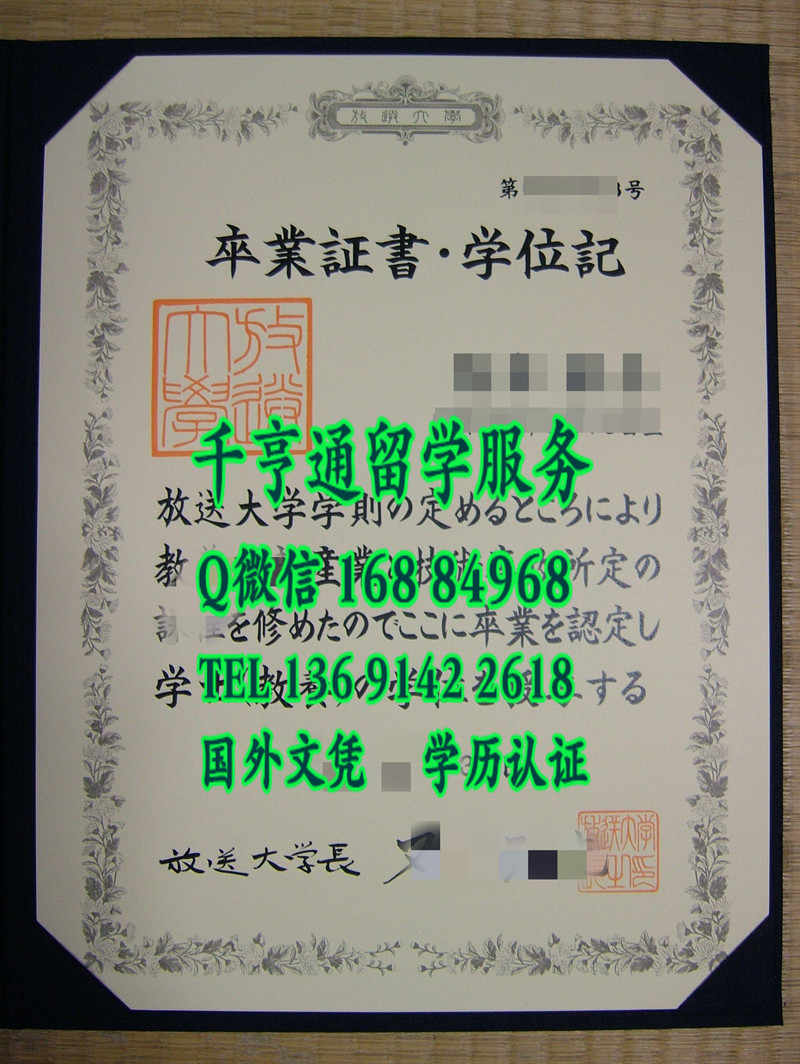 放送大學
第 号
卒業証書・学位記
放送大學
千亨通留学服务
放送大学学則の定めるところにより
教 産業 技術 所定の
Q微信 168 84968
課程を修めたのでここに卒業を認定し
TEL 136 9142 2618
学 (教養)の学位を授 する
国外文凭 学历认证
放送大学長
放送大学